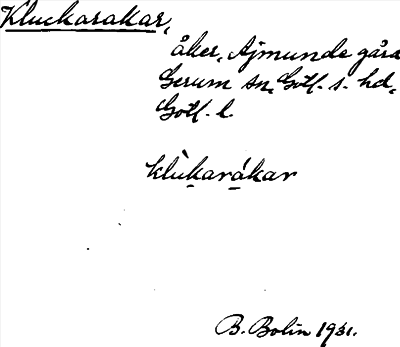 Kluckarakar,
åker, Ajmunde gård
Gerum sn, Gotl. s. hd,
Gotl. l.
klùkarákar
B. Bolin 1931.